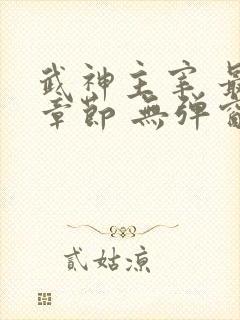 武神主宰 最
章節 無彈窗
貳姑涼